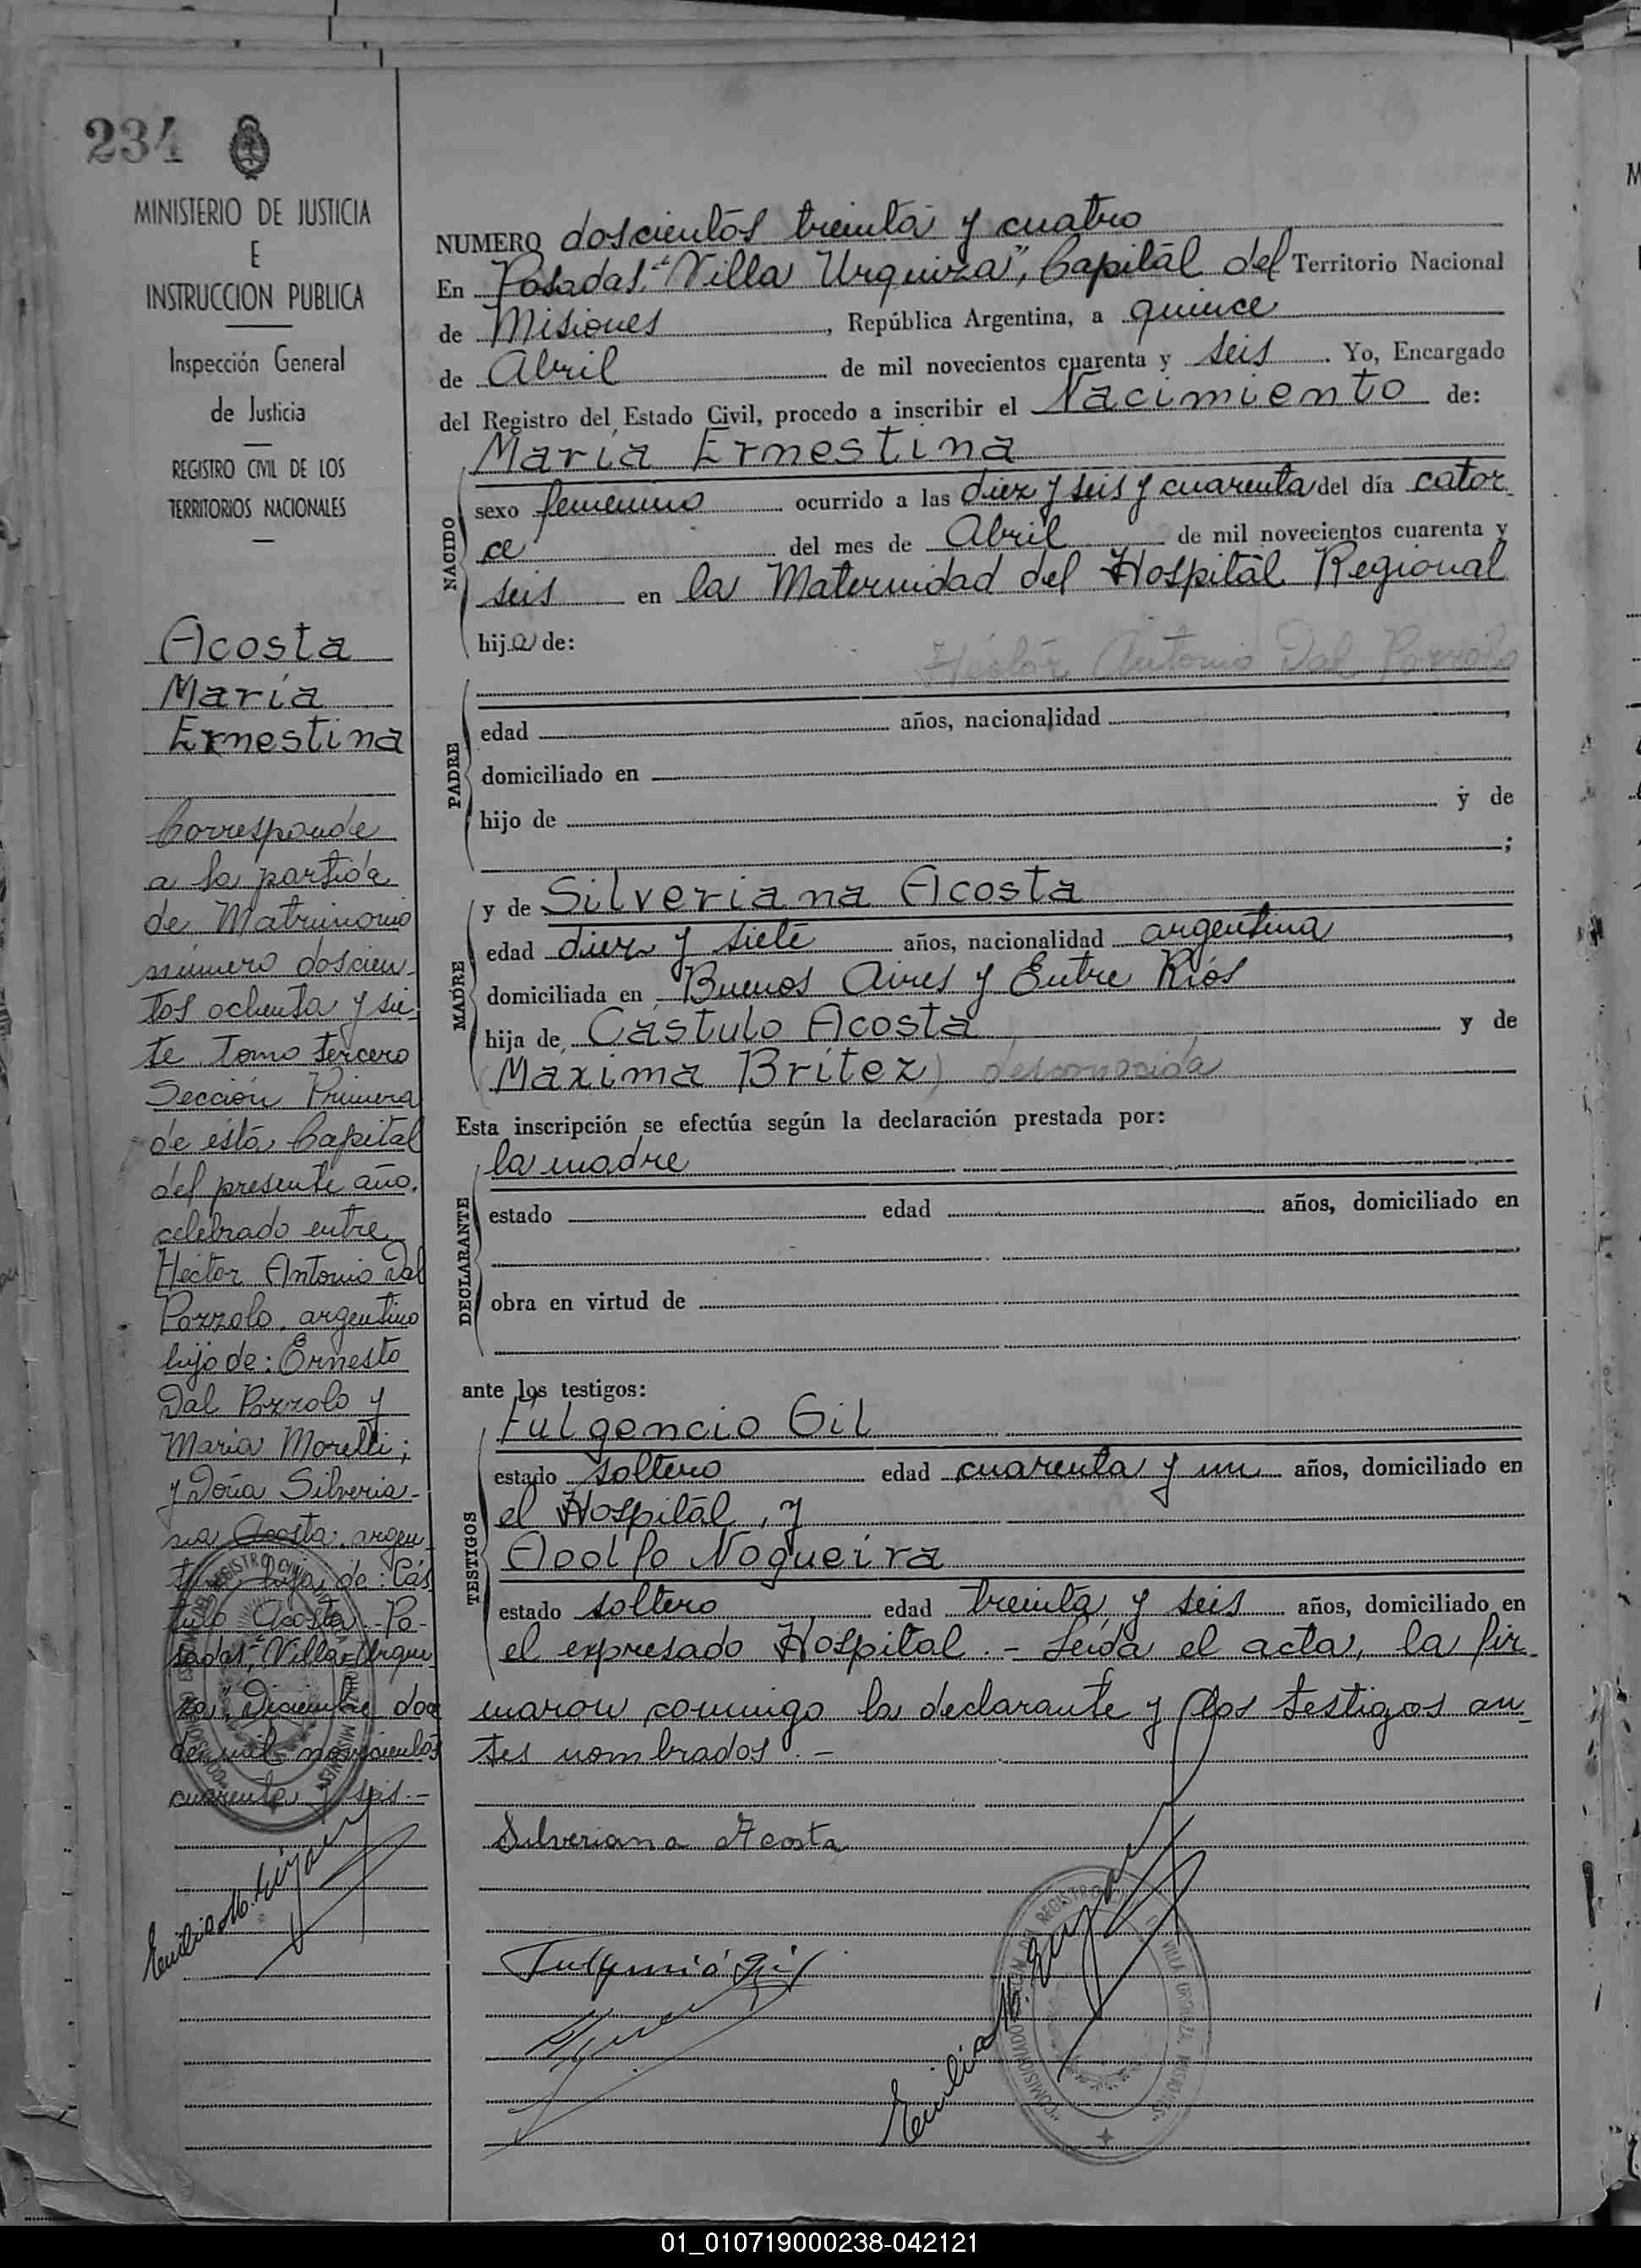 234
MINISTERIO DE JUSTICIA
E
INSTRUCCION PUBLICA
Inspección General
de Justicia
REGISTRO CIVIL DE LOS
TERRITORIOS NACIONALES
Acosta
María
Ernestina
Corresponde
a la partida
de Matrimonio
número doscien-
tos ochenta y sie-
te Tomo tercero
Sección Primera
de ésta Capital
del presente año,
celebrado entre
Héctor Antonio Dal
Pozzolo, argentino
hijo de: Ernesto
Dal Pozzolo y
María Morelli;
y Doña Silveria-
na Acosta, argen-
tina hija de: Cás-
tulo Acosta.- Po-
sadas, "Villa Urqui-
za", Diciembre doce
de mil novecientos
cuarenta y seis.-
NUMERO doscientos treinta y cuatro
En Posadas "Villa Urquiza", Capital del Territorio Nacional
de Misiones, República Argentina, a quince
de Abril de mil novecientos cuarenta y seis. Yo, Encargado
del Registro del Estado Civil, procedo a inscribir el Nacimiento de:
NACIDO
María Ernestina
sexo femenino ocurrido a las diez y seis y cuarenta del día cator-
ce del mes de Abril de mil novecientos cuarenta y
seis en la Maternidad del Hospital Regional
hija de:
PADRE
Héctor Antonio Dal Pozzolo
edad años, nacionalidad ,
domiciliado en
hijo de y de
;
MADRE
y de Silveriana Acosta
edad diez y siete años, nacionalidad argentina,
domiciliada en Buenos Aires y Entre Ríos
hija de Cástulo Acosta y de
(Máxima Brítez) desconocida
Esta inscripción se efectúa según la declaración prestada por:
DECLARANTE
la madre
estado edad años, domiciliado en
obra en virtud de
ante los testigos:
TESTIGOS
Fulgencio Gil
estado soltero edad cuarenta y un años, domiciliado en
el Hospital, y
Adolfo Nogueira
estado soltero edad treinta y seis años, domiciliado en
el expresado Hospital.- Leída el acta, la fir-
maron conmigo la declarante y los testigos an-
tes nombrados.-
Silveriana Acosta
Fulgencio Gil
01_010719000238-042121